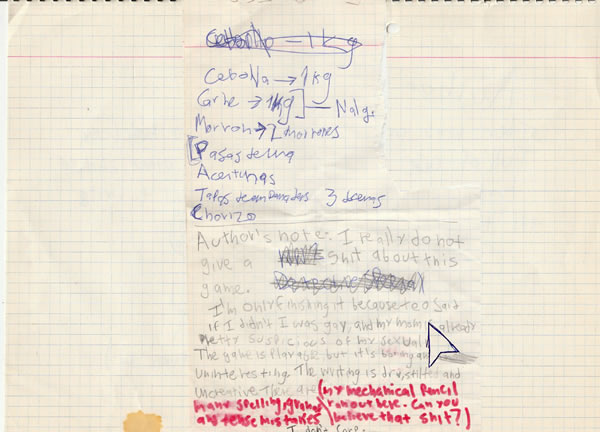 Cebolla → 1 kg
Carne → 1 kg — Nalg.
Morron → 2 morrones
Pasas de uva
Aceitunas
Tapas de empanadas 3 docenas
Chorizo
Author's note: I really do not
give a shit about this
game.
I'm only finishing it because Leo said
if I didn't I was gay, and my mom is already
pretty suspicious of my sexuali
The game is playable but it's boring an
uninteresting. The writing is dry, stilted and
uncreative. There are (my mechanical pencil
many spelling, gramm ran out here. Can you
and tense mistakes believe that shit?)
I don't care.